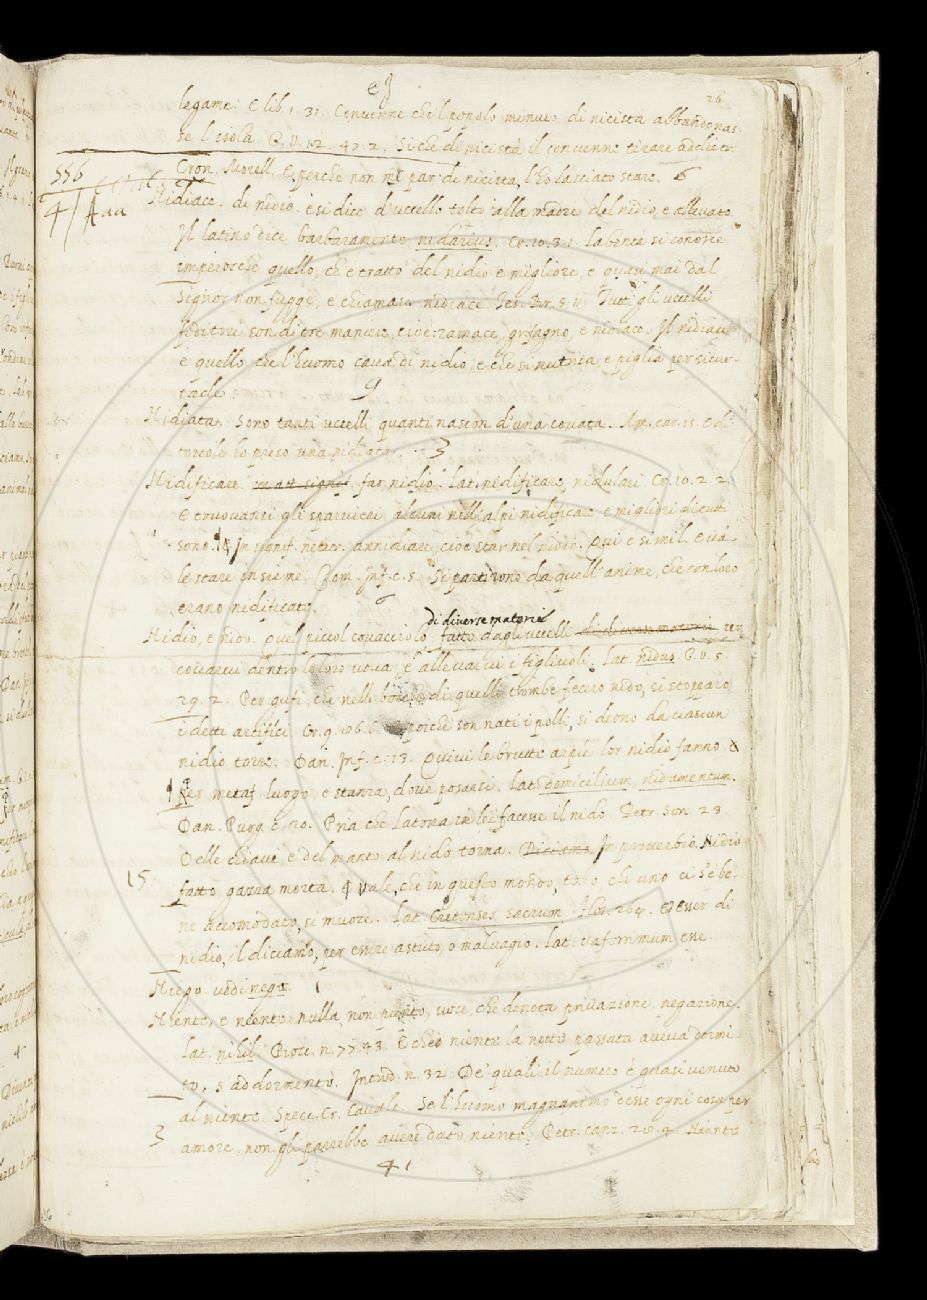 26
legame. E lib. 1. 31. Convenne che 'l popolo minuto di nicista abbandonas-
se l'isola. G. V. 12. 47. 2. Sicchè di nicistà il convenne tirare addietro.
Cron. Morell. E perche non mi par di nicista, l'ho lasciato stare. 6
556
4
Nidiace. di nidio. e si dice d'uccello tolto alla madre del nidio, e allevato.
Il latino dice barbaramente nidarius. Cr. 10. 3. 1. La bontà si conosce
imperocchè quello, ch'è tratto del nidio è migliore, e quasi mai dal
Signor non fugge, e chiamasi nidiace. Tes. Br. 5. 11. Tutti gli uccelli
feditori son di tre maniere, cioè ramace, grifagno, e nidiace. Il nidiace
è quello, che l'huomo cava di nidio, e che si nutrica, e piglia per sicur-
tade. 9
Nidiata. Sono tanti uccelli quanti nascon d'una covata. Am. car.
tortole ho preso una nidiata. 3
Nidificare. far nidio. Lat. nidificare, nidulari. Cr. 10. 2. 2.
E truovansi gli sparvieri alcuni nell'alpi nidificare, e migliori di tutti
sono. In signif. neutr. annidiare, cioè star nel nidio. Qui è simil. e va-
le stare insieme. Com. Inf. c. 5. Si partirono da quell'anime, che con loro
erano nidificate. 6
di diverse materie
Nidio, e nido. Quel piccol covacciolo fatto dagli uccelli di diverse materie per
covarvi dentro le loro uova, e allevarvi i figliuoli. Lat. nidus. G. V. 5.
29. 2. Per gufi, che nelle bocche di quelle trombe fecero nido, si stopparo
i detti artifici. Cr. 9. poichè son nati i polli, si deono da ciascun
nidio torre. Dan. Inf. c. 13. Quivi le brutte arpie lor nidio fanno. E
per metaf. luogo, e stanza, dove posarsi. Lat. domicilium, nidamentum.
Dan. Purg. c. 20. Pria che Latona in lei facesse il nido. Petr. Son. 23.
Delle chiavi, e del manto al nido torna. Diciamo In proverbio. Nidio
15
fatto gazza morta. E vale, che in questo mondo, tosto, che uno ci s'è be-
ne accomodato, si muore. Lat. Cretenses sacrum. Flos. 264. E Esser di
nidio, il diciamo, per essere astuto, o malvagio. Lat. vaferrimum esse.
Niego. vedi nego. 1
Niente, e neente. nulla, non punto, voce, che denota privazione, negazione.
Lat. nihil. Bocc. n. 77. 43. E chèd niente la notte passata aveva dormi-
to, s'addormentò. Introd. n. 32. De' quali il numero è quasi venuto
al niente. Spec. Cr. Cavalc. Se l'huomo magnanimo desse ogni cosa per
3
amore, non gli parrebbe avere dato niente. Petr. canz. 20. 4. Niente
41